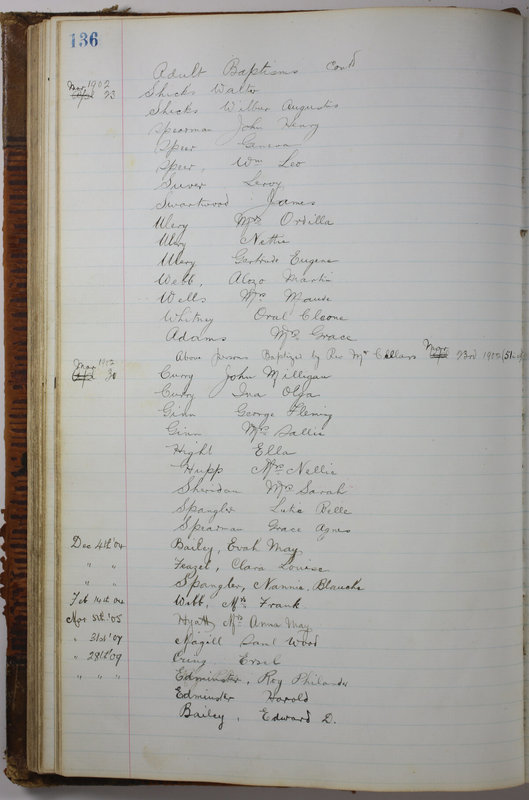 136
Adult Baptisms Cont'd
Mar 1902
23 Shicks Walter
Shicks Wilbur Augustus
Spearman John Henry
Speer Geneva
Speer, Wm Leo
Suver Leroy
Swartwood James
Ulery Mrs Ordilla
Ulery Nettie
Ulery Gertrude Eugene
Webb, Alozo Martin
Wells Mrs Maude
Whitney Oral Cleone
Adams Mrs Grace
Above Persons Baptized by Rev Mr Cellars Mar 23rd 1902
Mar 1902
30 Curry John Milligan
Curry Ina Olga
Ginn George Fleming
Ginn Mrs Sallie
Hight Ella
Hupp Mrs Nellie
Sheridan Mrs Sarah
Spangler Luke Belle
Spearman Grace Agnes
Dec 4th '04 Bailey, Evah May
" " Frazel, Clara Louise
" " Spangler, Nannie, Blanche
Feb 14th 04 Webb, Mrs Frank.
Mar 5th '05 Hyatt Mrs Anna May
" 31st '07 Magill Saul Wood
" 28th '09 Ersel
" " " Edminster, Roy Philander
Edminster Harold
Bailey, Edward D.